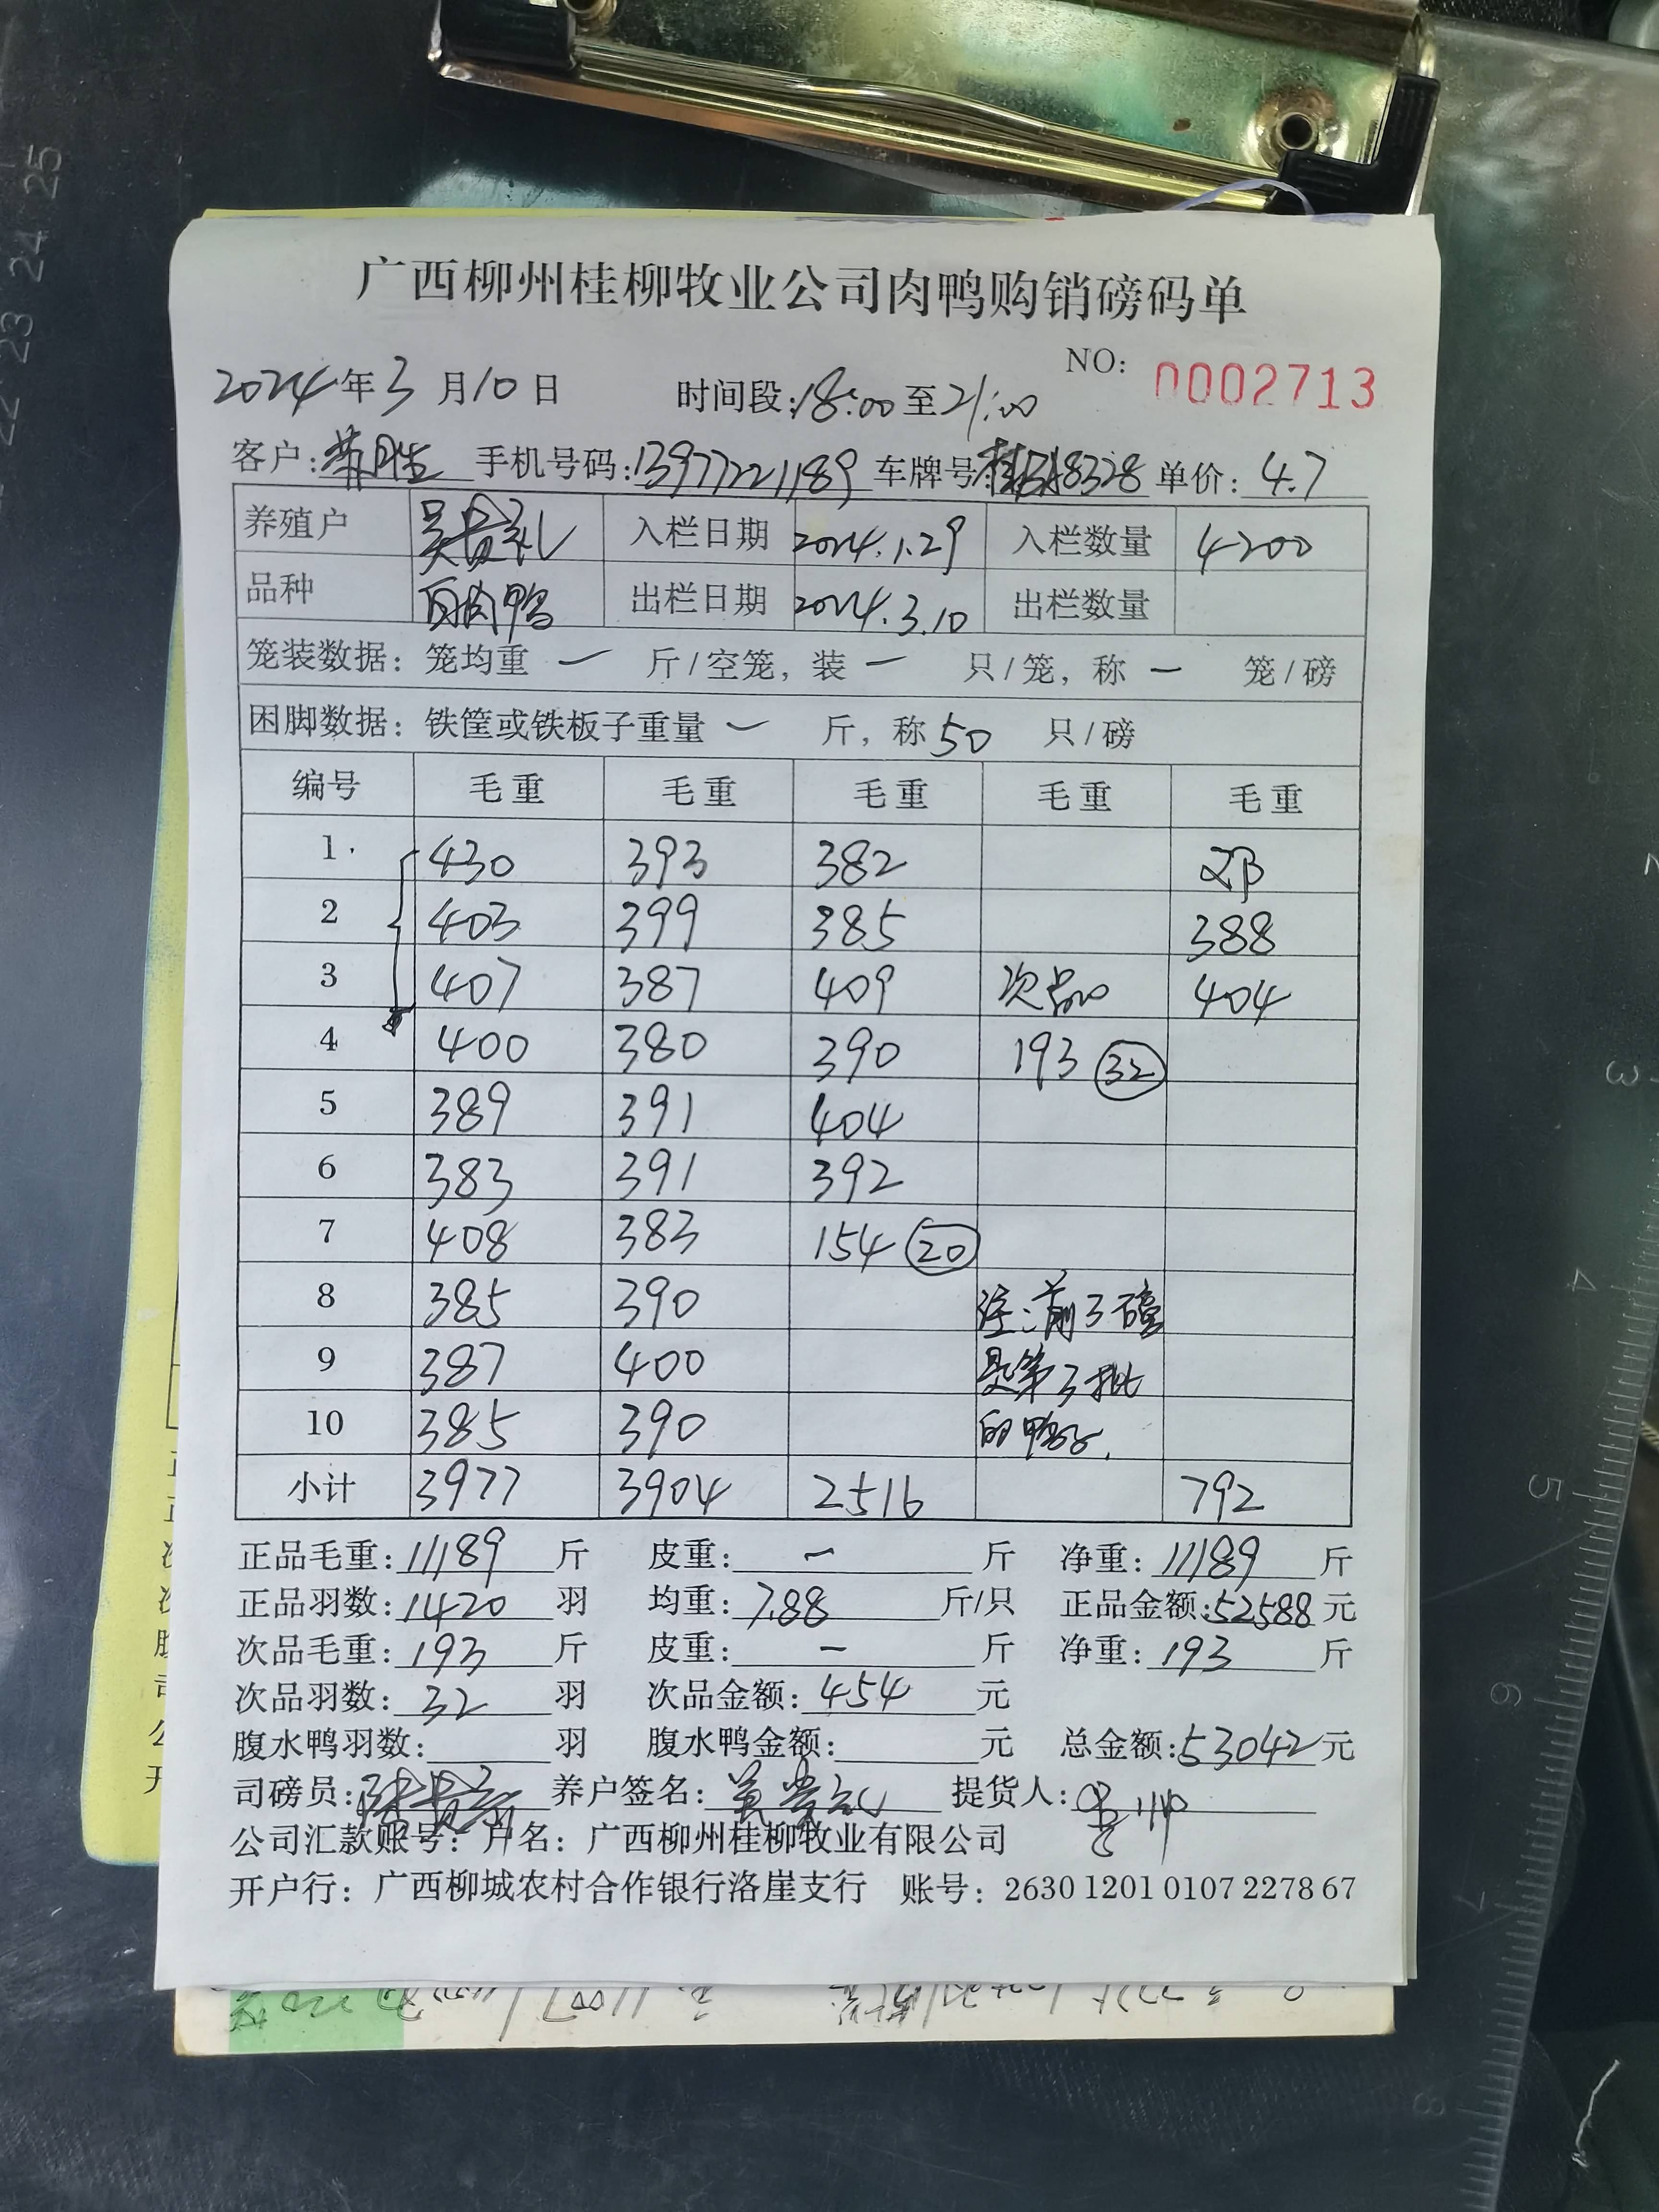 广西柳州桂柳牧业公司肉鸭购销磅码单
NO: 0002713
2024年3月10日 时间段:18:00至21:00
客户: 手机号码:13977221189 车牌号: 8328 单价:4.7
养殖户 吴贵礼 入栏日期 2024.1.29 入栏数量 4200
品种 白肉鸭 出栏日期 2024.3.10 出栏数量
笼装数据:笼均重 一 斤/空笼,装 一 只/笼,称 一 笼/磅
困脚数据:铁筐或铁板子重量 一 斤,称 50 只/磅
编号 毛重 毛重 毛重 毛重 毛重
1 430 393 382 邓
2 403 399 385 388
3 407 387 409 次品 404
4 400 380 390 193 32
5 389 391 404
6 383 391 392
7 408 383 154 20
8 385 390 注:前3磅
9 387 400 是第3批
10 385 390 的鸭
小计 3977 3904 2516 792
正品毛重:11189斤 皮重:一斤 净重:11189斤
正品羽数:1420羽 均重:7.88斤/只 正品金额:52588元
次品毛重:193斤 皮重:一斤 净重:193斤
次品羽数:32羽 次品金额:454元
腹水鸭羽数: 羽 腹水鸭金额: 元 总金额:53042元
司磅员: 养户签名: 提货人:
公司汇款账号:户名:广西柳州桂柳牧业有限公司
开户行:广西柳城农村合作银行洛崖支行 账号:2630 1201 0107 2278 67